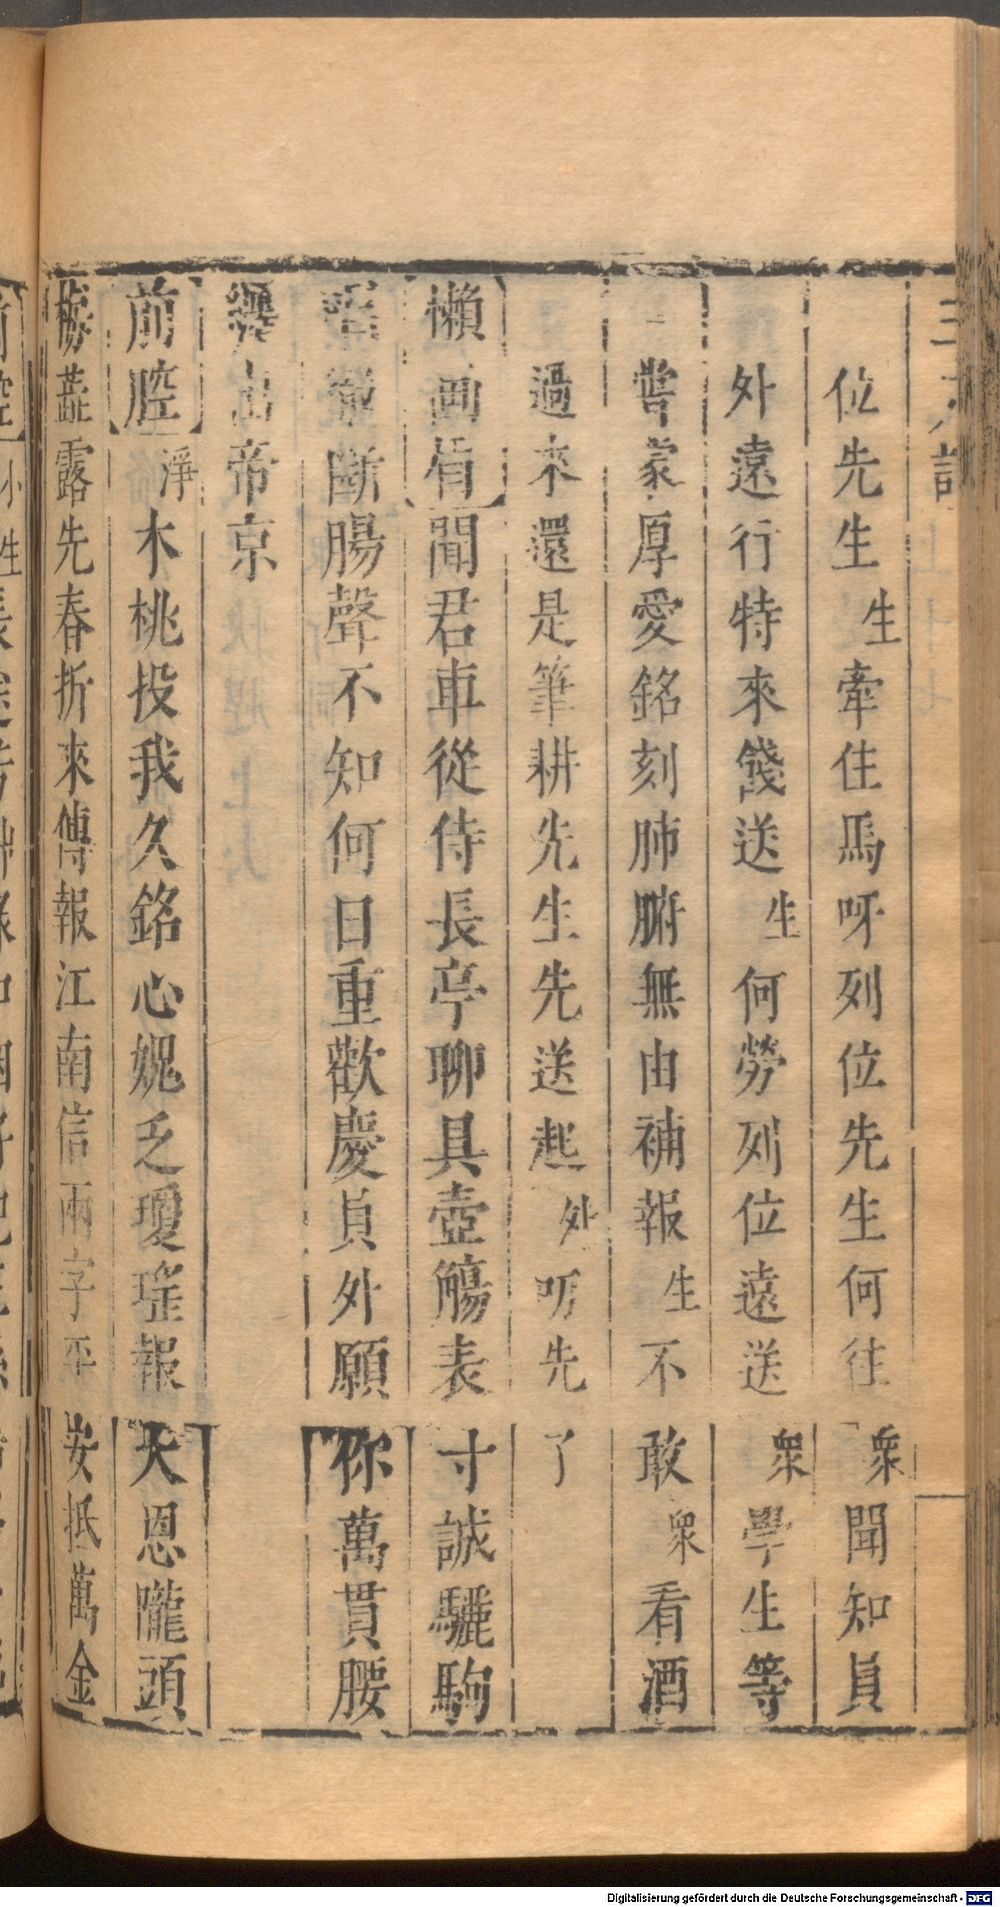 三元記
位先生生牽住馬呀列位先生何往衆聞知員
外遠行特來餞送生何勞列位遠送衆學生等
嘗蒙厚愛銘刻肺腑無由補報生不敢衆看酒
過來還是筆耕先生先送起外叨先了
懶画眉聞君車從侍長亭聊具壺觴表寸誠驪駒
唱徹斷腸聲不知何日重歡慶員外願你萬貫腰
纏出帝京
前腔淨木桃投我久銘心媿乏瓊瑤報天恩隴頭
梅蕋露先春折來傳報江南信兩字平安抵萬金
Digitalisierung gefördert durch die Deutsche Forschungsgemeinschaft - DFG